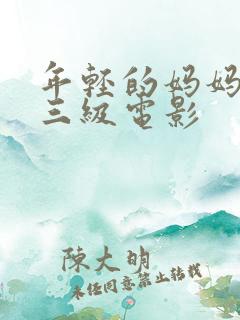 年轻的妈妈
三级电影
陈大明
未经同意禁止转载